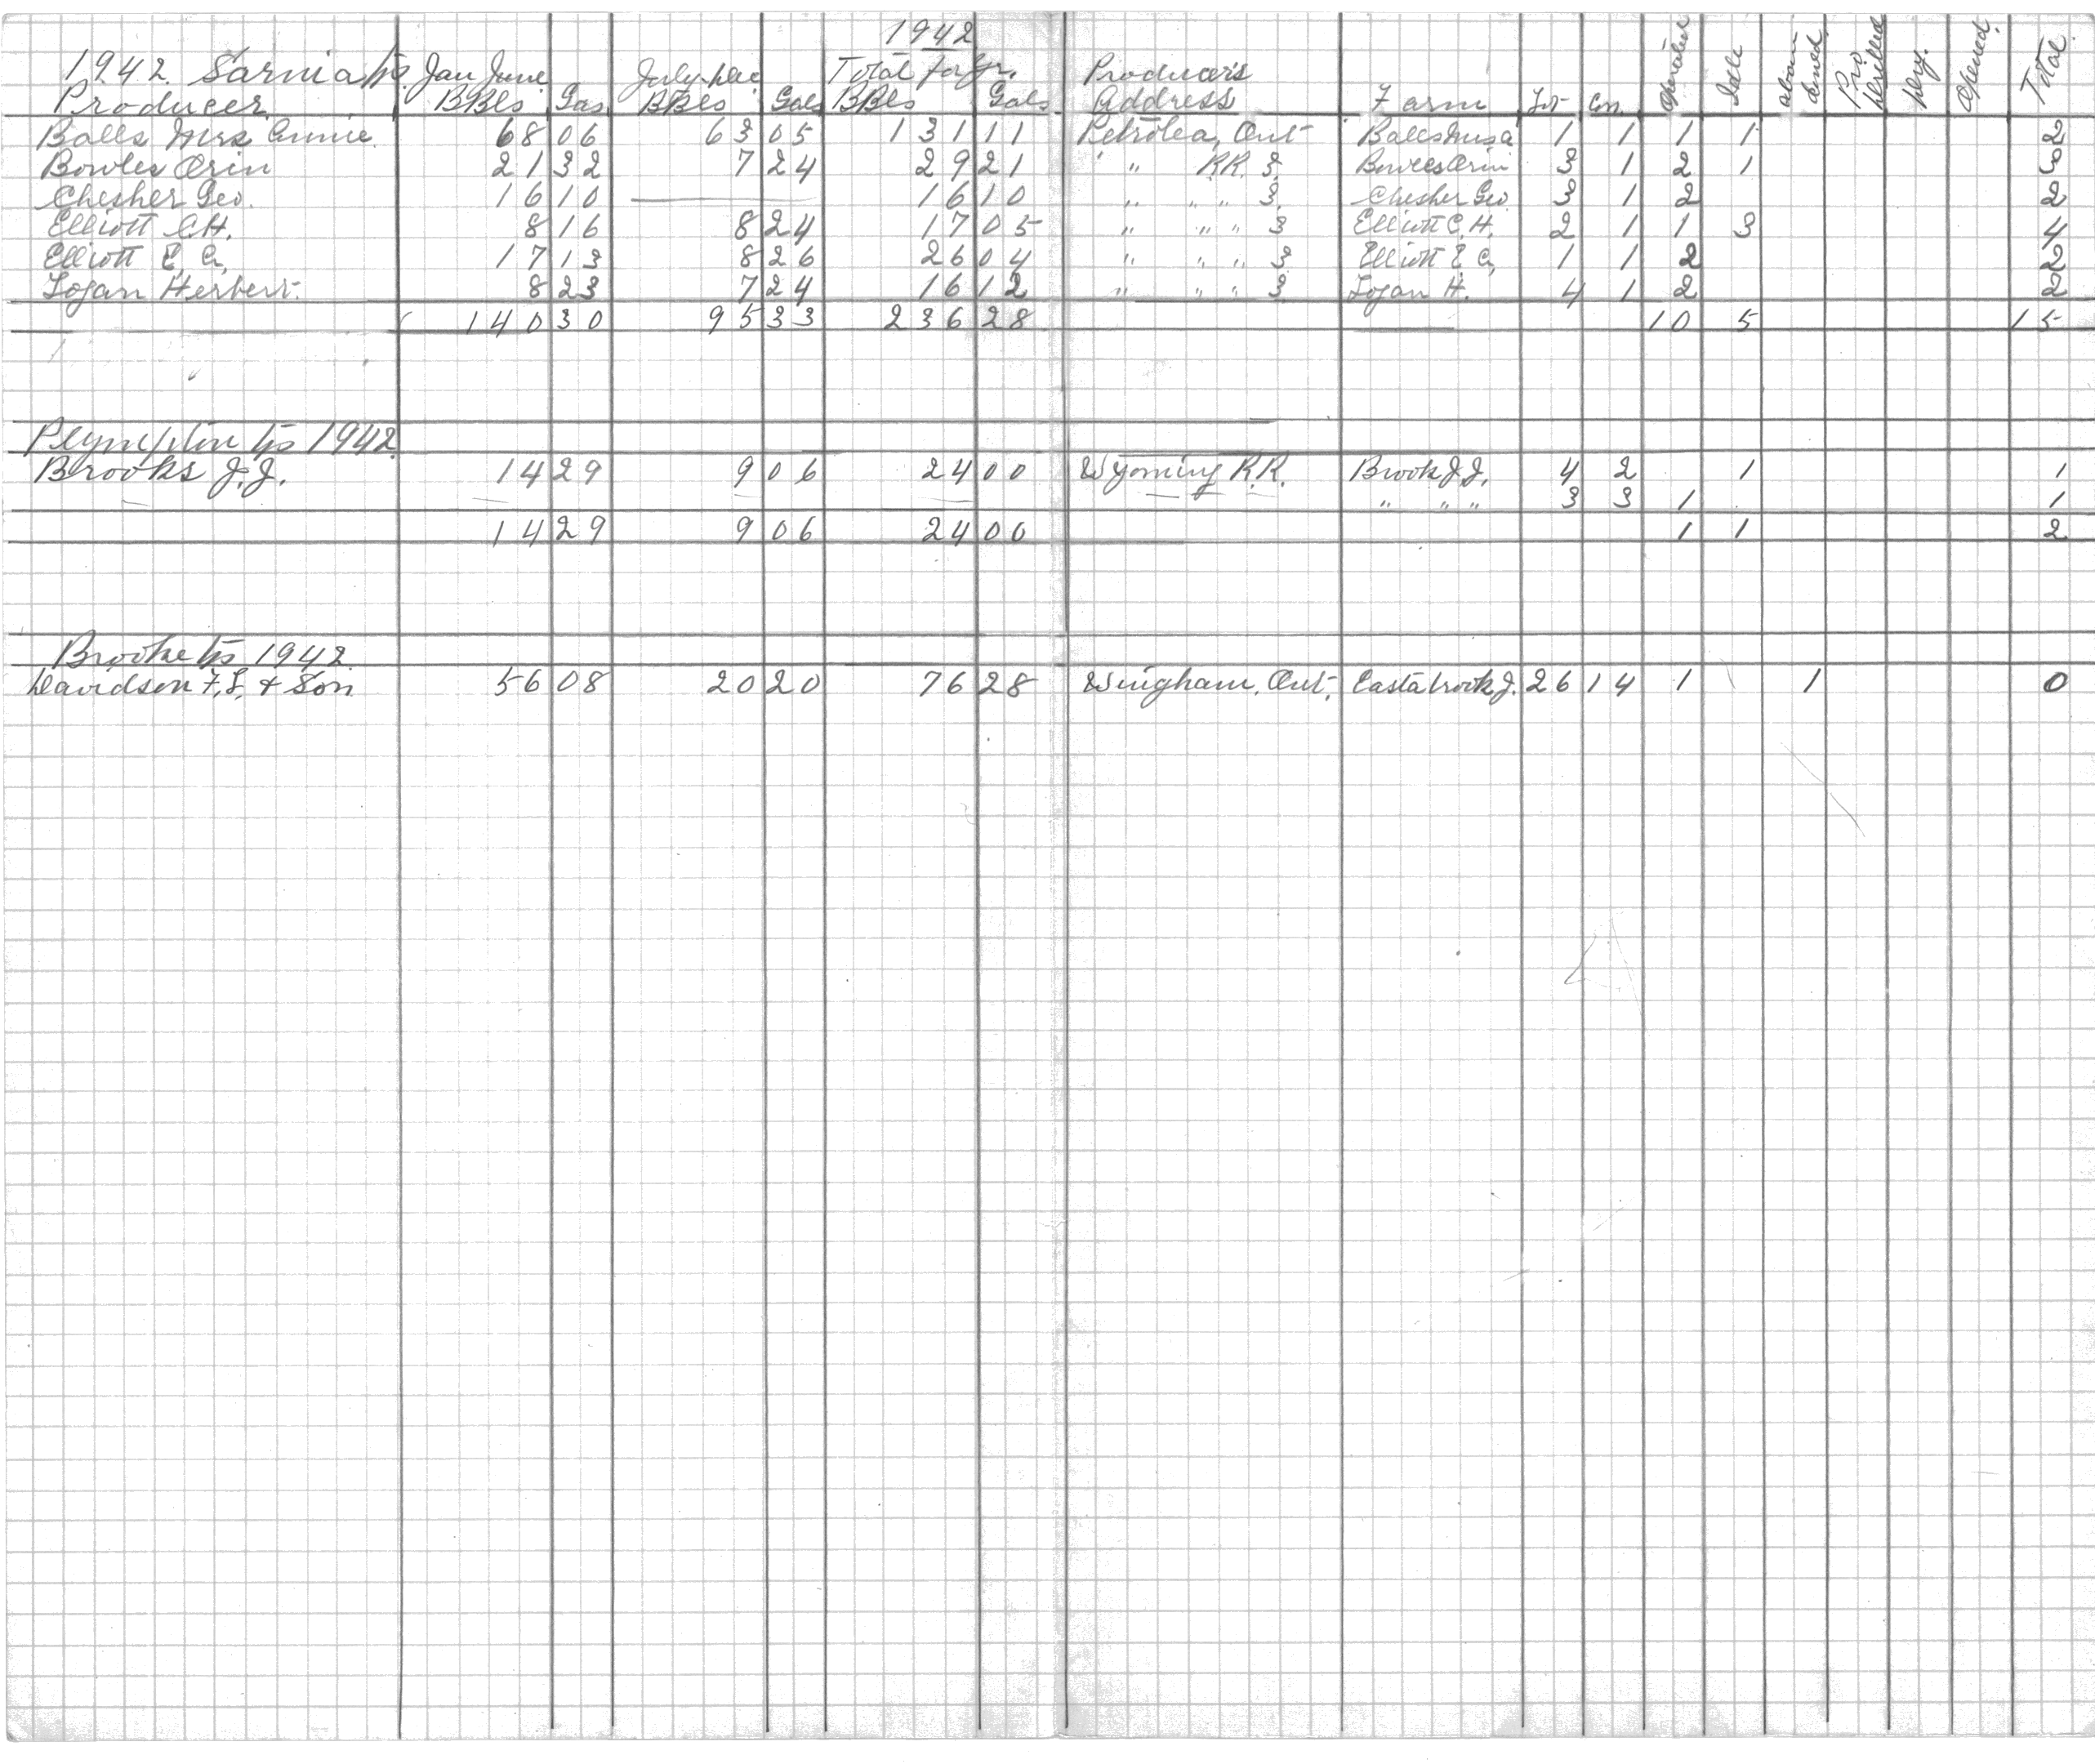 1942
1942. Sarnia tp. Jan June July-Dec Total for Yr. Producer's Operated Idle aban doned Pro Drilled Dry. Opened. Total
Producer BBls Gas BBls Gals BBls Gals Address Farm Lot Con.
Balls Mrs Annie 68 06 63 05 131 11 Petrolea, Ont Balls Mrs A 1 1 1 1 2
Bowles Orin 21 32 7 24 29 21 " R.R. 3. Bowles Orin 3 1 2 1 3
Chesher Geo. 16 10 — 16 10 " " " 3. Chesher Geo 3 1 2 2
Elliott C.H. 8 16 8 24 17 05 " " " 3 Elliott C.H. 2 1 1 3 4
Elliott E. A. 17 13 8 26 26 04 " " " 3 Elliott E A. 1 1 2 2
Logan Herbert. 8 23 7 24 16 12 " " " 3 Logan H. 4 1 2 2
140 30 95 33 236 28 10 5 15
Plympton tp 1942
Brooks J.J. 14 29 9 06 24 00 Wyoming R.R. Brook J.J. 4 2 1 1
" " " 3 3 1 1
14 29 9 06 24 00 1 1 2
Brooke tp 1942
Davidson F.L. & Son 56 08 20 20 76 28 Wingham, Ont. Eastabrook J. 26 14 1 1 0